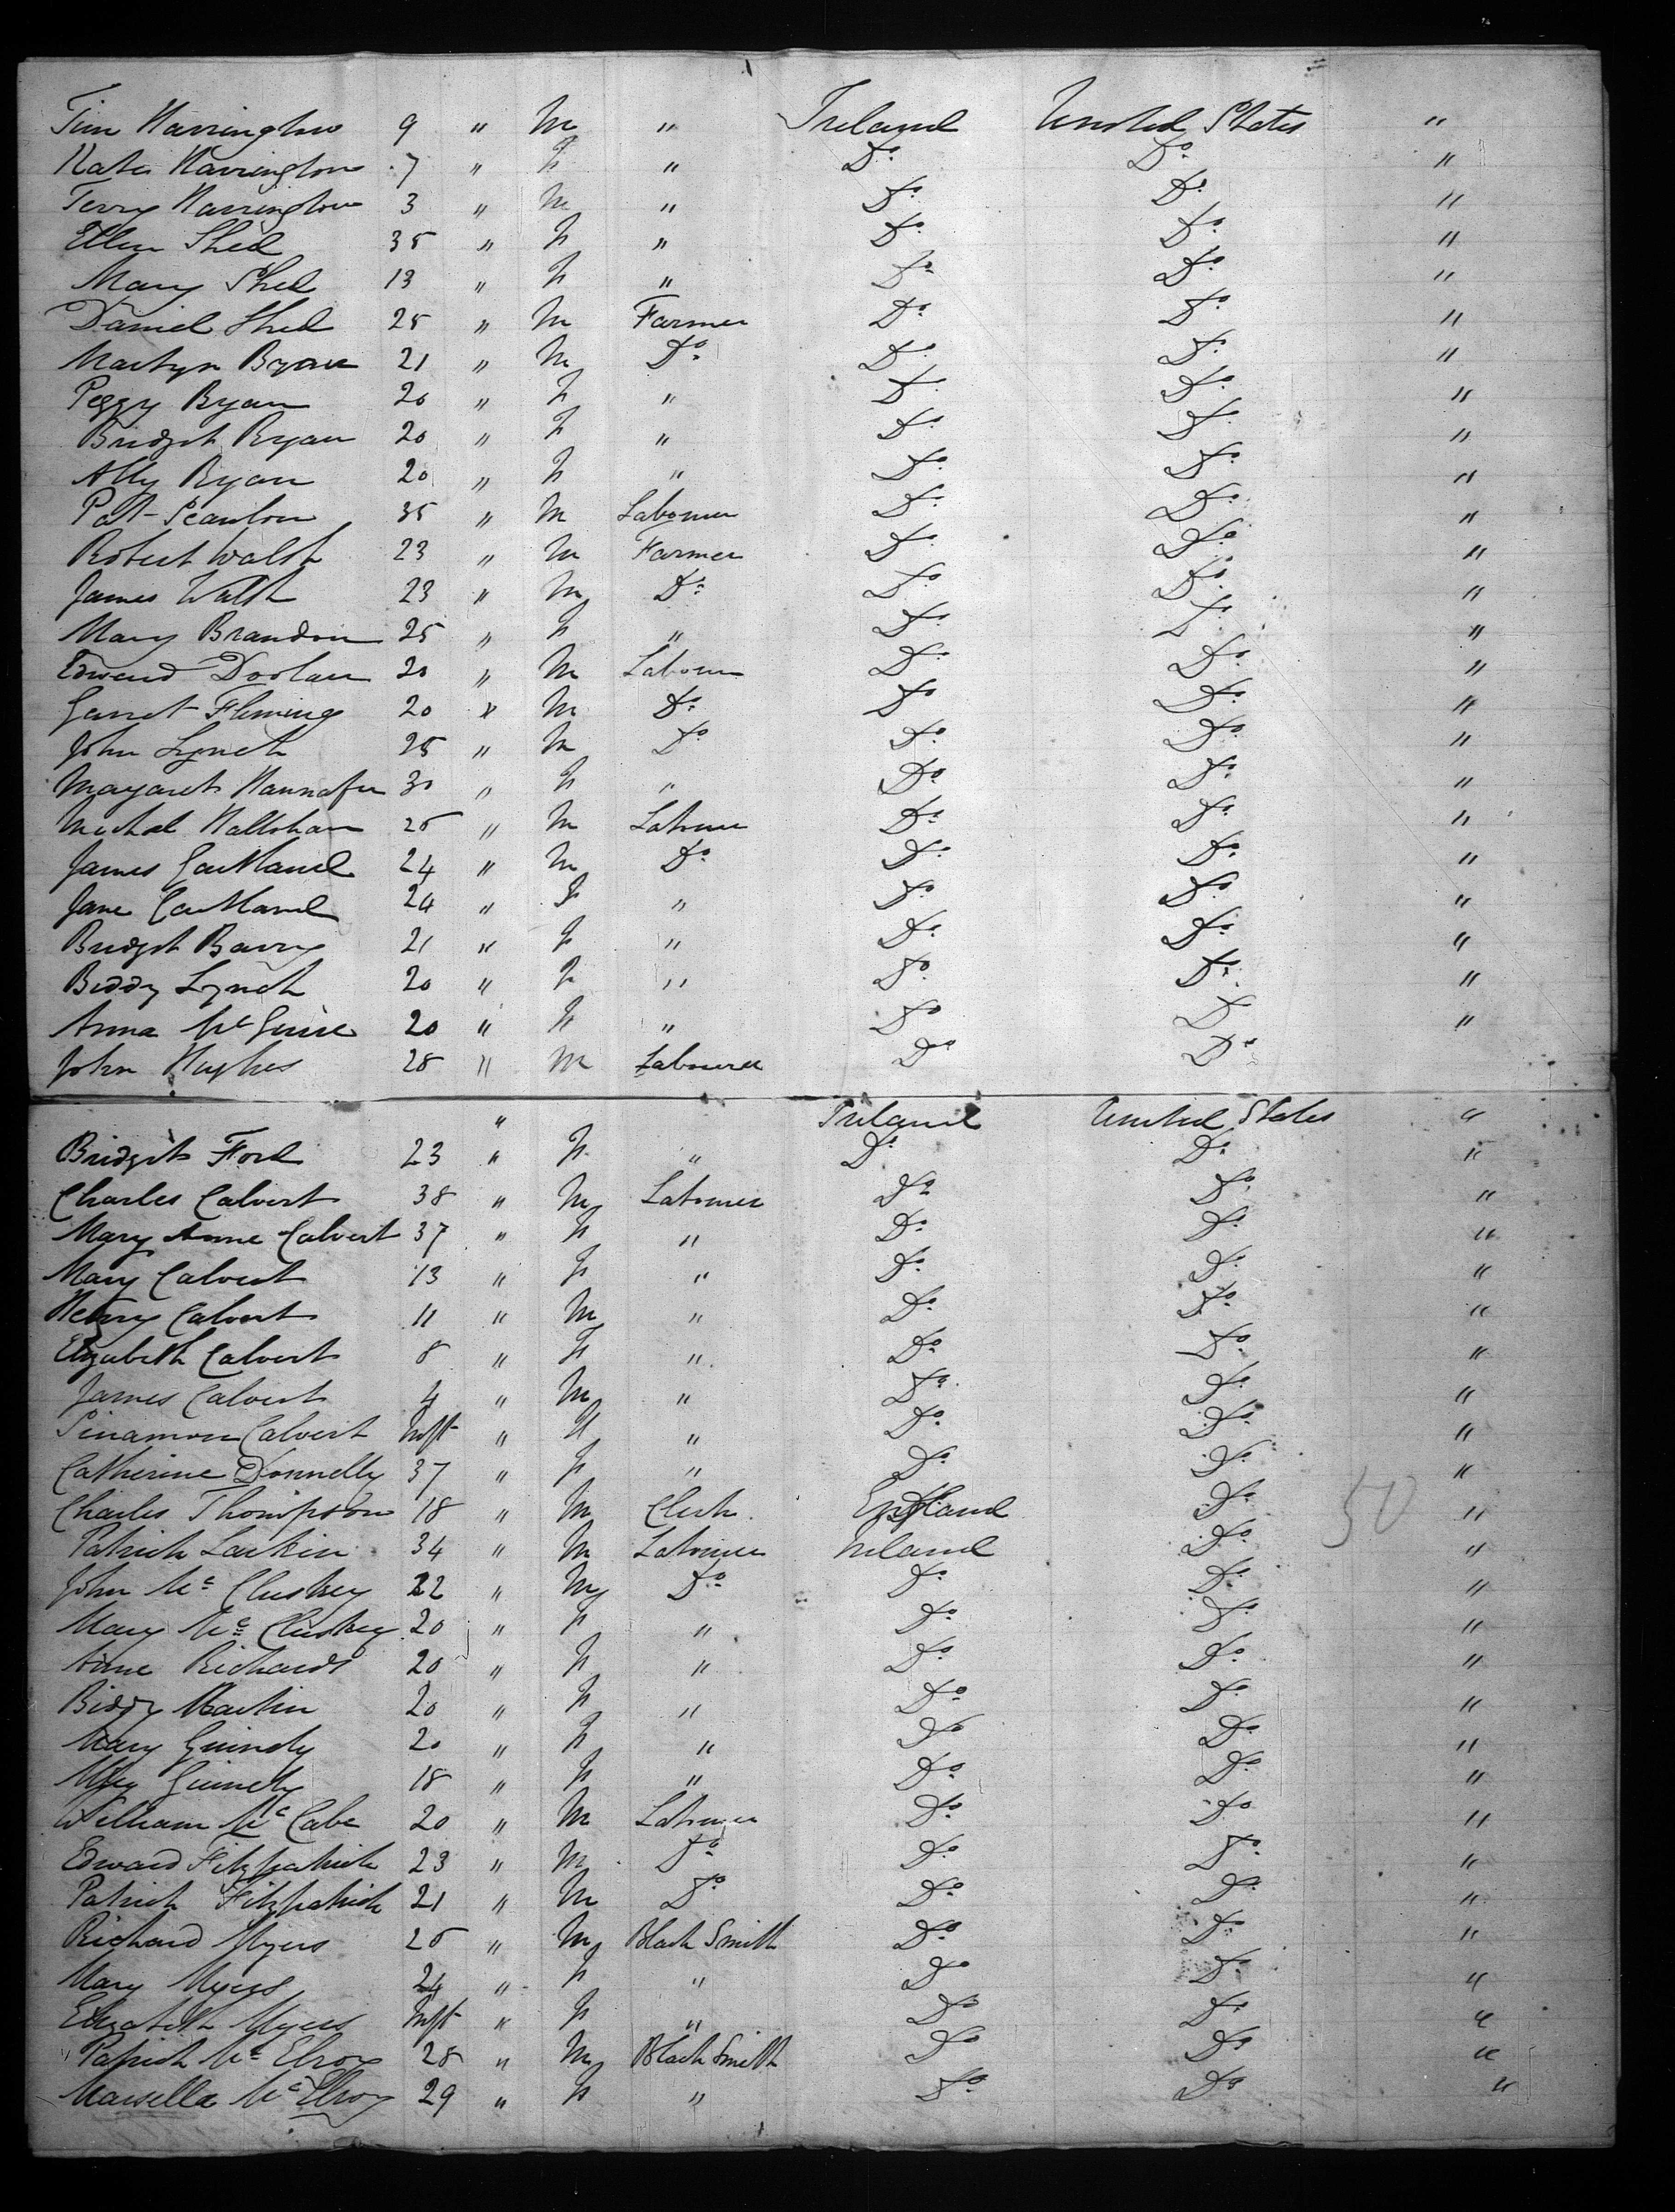 Tim Harrington 9 " M " Ireland United States "
Kate Harrington 7 " F " Do Do "
Terry Harrington 3 " M " Do Do "
Ellen Shed 35 " F " Do Do "
Mary Shed 13 " F " Do Do "
Daniel Shed 25 " M Farmer Do Do "
Martyn 21 " M Do Do Do "
Peggy Ryan 20 " F " Do Do "
Bridget Ryan 20 " F " Do Do "
Ally Ryan 20 " F " Do Do "
Pat Scanlon 35 " M Labourer Do Do "
Robert Walsh 23 " M Farmer Do Do "
James Walsh 23 " M Do Do Do "
Mary Brandon 25 " F " Do Do "
Edward Doolan 20 " M Labourer Do Do "
Garret Fleming 20 " M Do Do Do "
John Lynch 25 " M Do Do Do "
Margaret 30 " F " Do Do "
Michal 25 " M Labourer Do Do "
James 24 " M Do Do Do "
Jane 24 " F " Do Do "
Bridget Barry 21 " F " Do Do "
Biddy Lynch 20 " F " Do Do "
Anna McGuire 20 " F " Do Do "
John Hughes 28 " M Labourer Do Do
" Ireland United States "
Bridget Ford 23 " F " Do Do "
Charles Calvert 38 " M Labourer Do Do "
Mary Anne Calvert 37 " F " Do Do "
Mary Calvert 13 " F " Do Do "
Henry Calvert 11 " M " Do Do "
Elizabeth Calvert 8 " F " Do Do "
James Calvert 4 " M " Do Do "
Sinamon Calvert Inft " F " Do Do "
Catherine Donnelly 37 " F " Do Do "
Charles Thompson 18 " M Clerk England Do "
50
Patrick Larkin 34 " M Labourer Ireland Do "
John McCluskey 22 " M Do Do Do "
Mary McCluskey 20 " F " Do Do "
Anne Richards 20 " F " Do Do "
Biddy Martin 20 " F " Do Do "
Mary 20 " F " Do Do "
18 " F " Do Do "
William McCabe 20 " M Labourer Do Do "
Edward Fitzpatrick 23 " M Do Do Do "
Patrick Fitzpatrick 21 " M Do Do Do "
Richard Myers 25 " M Black Smith Do Do "
Mary Myers 24 " F " Do Do "
Elizabeth Myers Inft " F " Do Do "
Patrick McElroy 28 " M Black Smith Do Do "
Marsella McElroy 29 " F " Do Do "